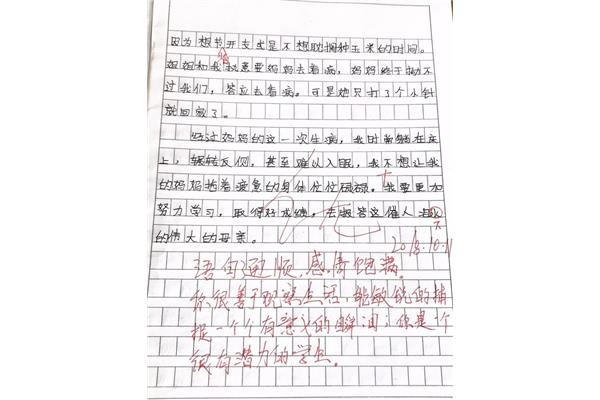 因为想节省开支或是不想耽搁种玉米的时间。
姐姐和我执意要妈妈去看病，妈妈终于拗不
过我们，答应去看病。可是她只打了个小针
就回家了。
经过妈妈的这一次生病，我时常躺在床
上，辗转反侧，甚至难以入眠，我不想让我
的妈妈拖着疲惫的身体忙忙碌碌。我要更加
努力学习，取得好成绩，去报答这催人
的伟大的母亲。
2018.10.11
语句通顺，感情饱满。
你很善于观察生活，能敏锐的捕
捉一个个有意义的瞬间；你是个
很有潜力的学生。